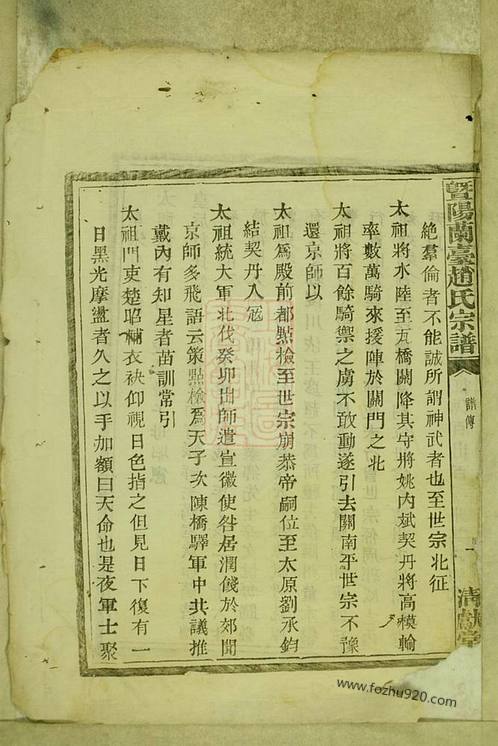 暨陽蘭臺趙氏宗譜
譜傳
一
清獻堂
絶羣倫者不能誠所謂神武者也至世宗北征
太祖將水陸至瓦橋關降其守將姚內斌契丹將高模輪
率數萬騎來援陣於關門之北
太祖將百餘騎禦之虜不敢動遂引去關南平世宗不豫
還京師以
太祖爲殿前都點檢至世宗崩恭帝嗣位至太原劉承鈞
結契丹入寇
太祖統大軍北伐癸卯出師遣宣徽使昝居潤餞於郊聞
京師多飛語云策點檢爲天子次陳橋驛軍中共議推
戴內有知星者苗訓常引
太祖門吏楚昭輔衣袂仰視日色指之但見日下復有一
日黑光摩盪者久之以手加額曰天命也是夜軍士聚
www.fozhu920.com